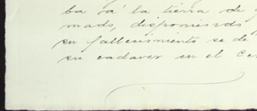 ba á la tierra de
mado, disponiendo
su fallecimiento se de
su cadaver en el Ce